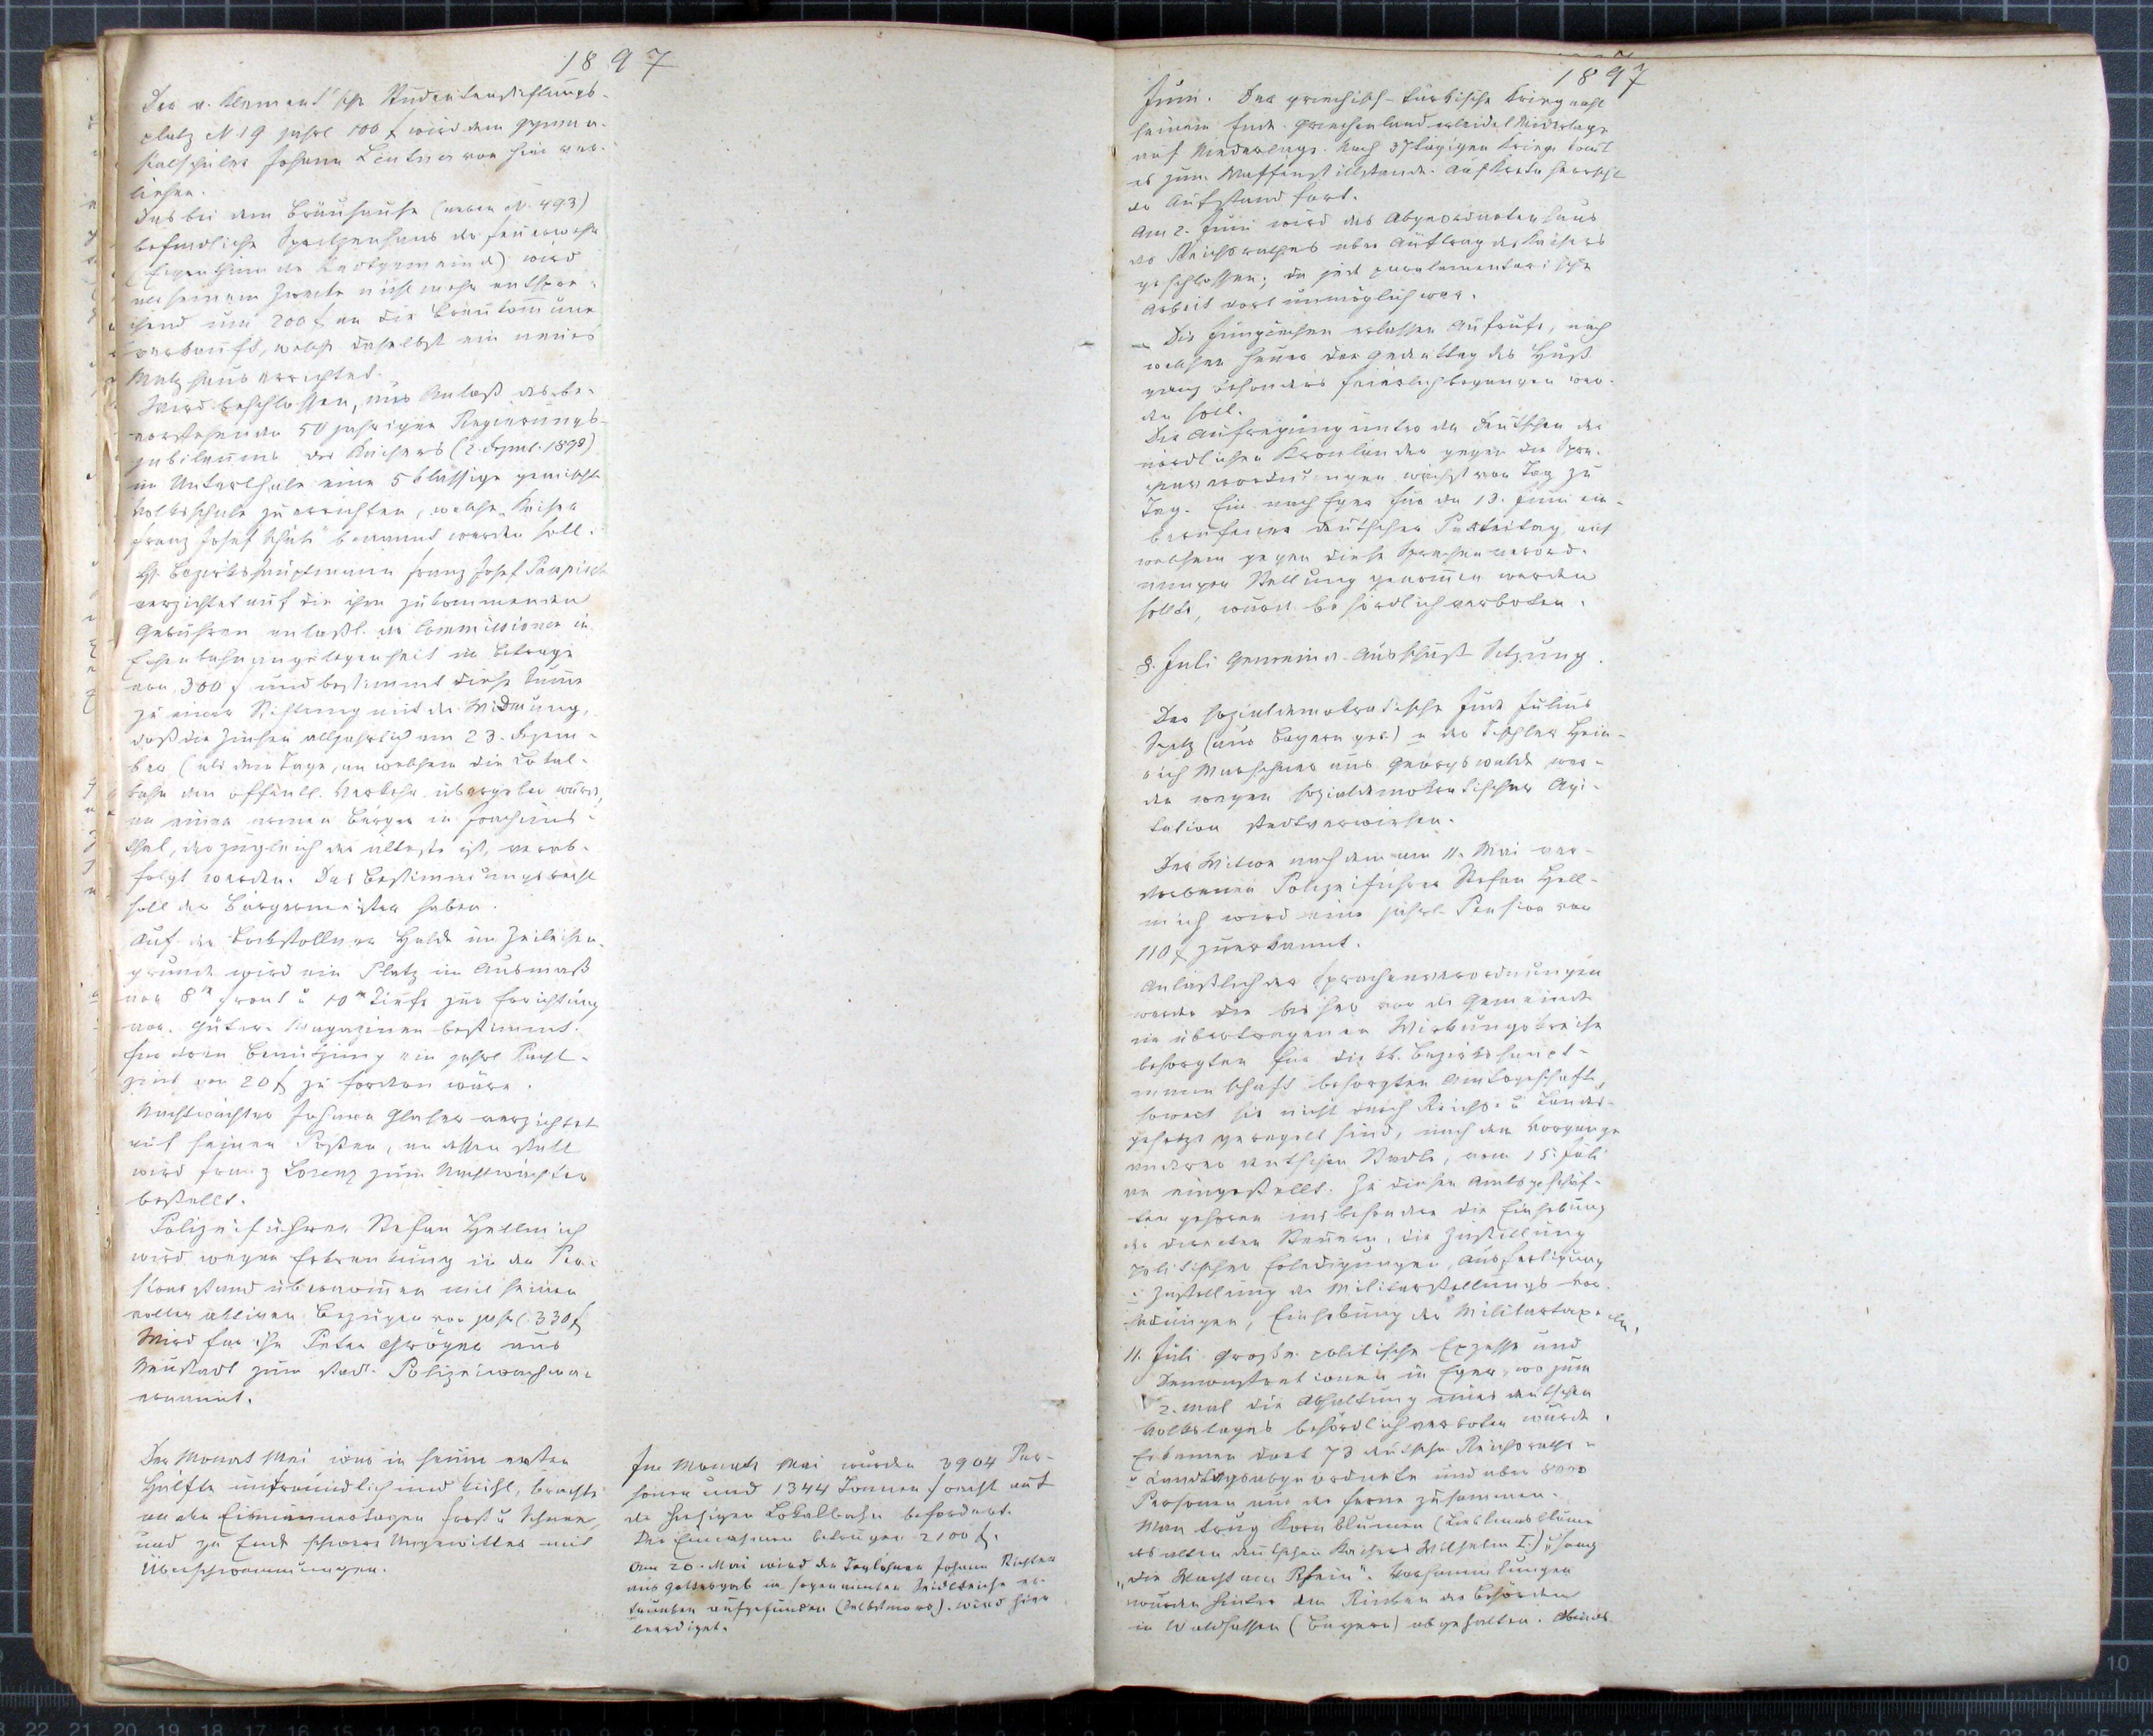 1897
Der v. Klement'sche Studentenstiftungs-
platz N 19 jährl 100 f wird dem Gymna-
sialschüler Johann Lentner von hier ver-
liehen.
Das bei dem Bräuhause (neben N. 493)
befindliche Spritzenhaus der Feuerwehr
(Eigenthum der Stadtgemeinde) wird
als seinem Zwecke nicht mehr entspre-
chend um 200 f an die Bräukommune
verkauft, welche daselbst ein neues
Malzhaus errichtet.
Wird beschlossen, aus Anlaß des be-
vorstehenden 50 jährigen Regierungs-
jubiläums des Kaisers (2. Dezemb. 1898)
im Unterthale eine 5 klassige gemischte
Volksschule zu errichten, welche „Kaiser
Franz Josef Schule" benannt werden soll.
H. Bezirkshauptmann Franz Josef
verzichtet auf die ihm zukommenden
Gebühren anläßl. der Commissionen in
Eisenbahnangelegenheit im Betrage
von 300 f und bestimmt diese Summe
zu einer Stiftung mit der Widmung,
daß die Zinsen alljährlich am 23. Dezem-
ber (als dem Tage, an welchem die Lokal-
bahn dem öffentl. Verkehr übergeben wurde,
an einen armen Bürger in Joachims-
thal, der zugleich der älteste ist, verab-
folgt werden. Das Bestimmungsrecht
soll der Bürgermeister haben.
Auf der Halde im Zeileisen-
grunde wird ein Platz im Ausmaß
von 8m Front u 10m Tiefe zur Errichtung
von Güter-Magazinen bestimmt.
für deren Benützung ein jährl Pacht-
zins von 20 f zu fordern wäre.
Nachtwächter Johann Glaser verzichtet
auf seinen Posten, an dessen statt
wird Franz Lorenz zum Nachtwächter
bestellt.
Polizeiführer Stefan Hellmich
wird wegen Erkrankung in den Pen-
sionsstand übernommen mit seinen
vollen aktiven Bezügen von jährl. 330 f
Wird für ihn Peter Gröger aus
Neustadt zum städt. Polizeiwachmann
ernannt.
Der Monat Mai war in seiner ersten
Hälfte unfreundlich und kühl, brachte
an den Eismännertagen Frost u Schnee,
und zu Ende schwere Ungewitter mit
Überschwemmungen.
Im Monate Mai wurden 3904 Per-
sonen und 1344 Tonnen Fracht auf
der hiesigen Lokalbahn befördert.
Die Einnahmen betrugen 2100 f.
Am 26. Mai wird der Taglöhner Johann Richter
aus Gottesgab im sogenannten er-
trunken aufgefunden (Selbstmord). Wird hier
beerdiget.
1897
Juni. Der griechisch-türkische Krieg naht
seinem Ende. Griechenland erleidet Niederlage
auf Niederlage. Nach 37 tägigem Kriege kommt
es zum Waffenstillstande. Auf Kreta herrscht
der Aufstand fort.
Am 2. Juni wird das Abgeordnetenhaus
des Reichsrathes über Auftrag des Kaisers
geschlossen; da jede parlamentarische
Arbeit dort unmöglich war.
Die Jungčechen erlassen Aufrufe, nach
welchen heuer der Gedenktag des Huß
ganz besonders feierlich begangen wer-
den soll.
Die Aufregung unter den Deutschen der
nördlichen Kronländer gegen die Spra-
chenverordnungen wächst von Tag zu
Tag. Ein nach Eger für den 13. Juni ein-
berufener deutscher Parteitag, auf
welchem gegen diese Sprachenverord-
nungen Stellung genommen werden
sollte, wurde behördlich verboten.
8. Juli Gemeinde-Ausschuß Sitzung.
Der sozialdemokratische Jude Julius
Spitz (aus Bayern geb.) u der Tischler Hein-
rich Marschner aus Georgswalde wer-
den wegen sozialdemokratischer Agi-
tation stadtverwiesen.
Der Witwe nach dem am 11. Mai ver-
storbenen Polizeiführer Stefan Hell-
mich wird eine jährl. Pension von
110 f zuerkannt.
Anläßlich der Sprachenverordnungen
werden die bisher von der Gemeinde
im übertragenen Wirkungskreise
besorgten für die kk. Bezirkshaupt-
mannschaft besorgten Amtsgeschäfte,
soweit sie nicht durch Reichs- u Landes-
gesetze geregelt sind, nach dem Vorgange
anderer deutschen Städte, vom 15. Juli
an eingestellt. Zu diesen Amtsgeschäf-
ten gehören insbesondere die Einhebung
der direkten Steuern, die Zustellung
politischer Erledigungen, Ausfertigung
u Zustellung der Militärstellungs Vor-
ladungen, Einhebung der Militärtaxe etc.
11. Juli Große politische Exzesse und
Demonstrationen in Eger, wo zum
2. mal die Abhaltung eines deutschen
Volkstages behördlich verboten wurde.
Es kamen dort 73 deutsche Reichsraths-
u Landtagsabgeordnete und über 8000
Personen aus der Ferne zusammen.
Man trug Kornblumen (Lieblingsblume
des alten deutschen Kaisers Wilhelm I.) u sang
„die Wacht am Rhein". Versammlungen
wurden hinter dem Rücken der Behörden
in Waldsassen (Bayern) abgehalten. Abends